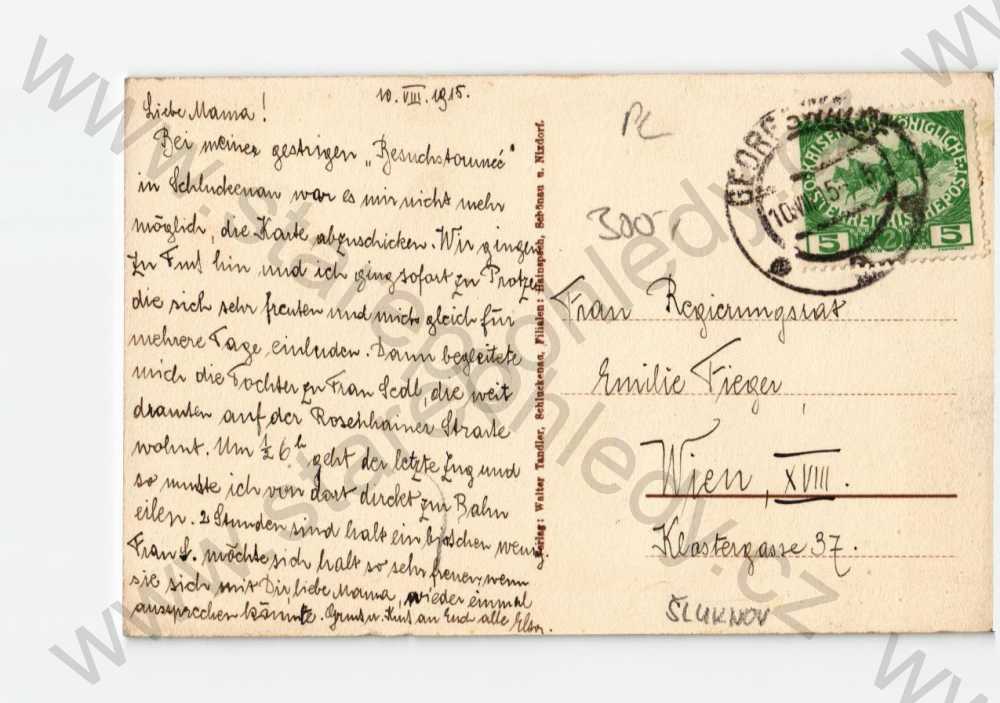 10. VIII. 1915.
Liebe Mama!
Bei meiner gestrigen „Besuchstournée"
in Schluckenau war es mir nicht mehr
möglich, die Karte abzuschicken. Wir gingen
zu Fuß hin und ich ging sofort zu Protze
die sich sehr freuten und mich gleich für
mehrere Tage einluden. Dann begleitete
mich die Tochter zu Frau Sedl, die weit
draußen auf der Rosenhainer Straße
wohnt. Um ½ 6 h geht der letzte Zug und
so mußte ich von dort direkt zur Bahn
eilen. 2 Stunden sind halt ein bisschen wenig.
Frau S. möchte sich halt so sehr freuen, wenn
sie sich mit Dir, liebe Mama, wieder einmal
aussprechen könnte. Gruß u. Kuß an Euch alle
Verlag: Walter Tandler, Schluckenau, Filialen: Hainspach, Schönau u. Nixdorf.
PL
300,-
GEORGSWALDE
10 VIII 15
KAISERLICHE KÖNIGLICHE
ÖSTERREICHISCHE POST
5 2 5
Frau Regierungsrat
Emilie Fieger,
Wien, XVIII.
Klostergasse 37.
ŠLUKNOV
www.starepohledy.cz